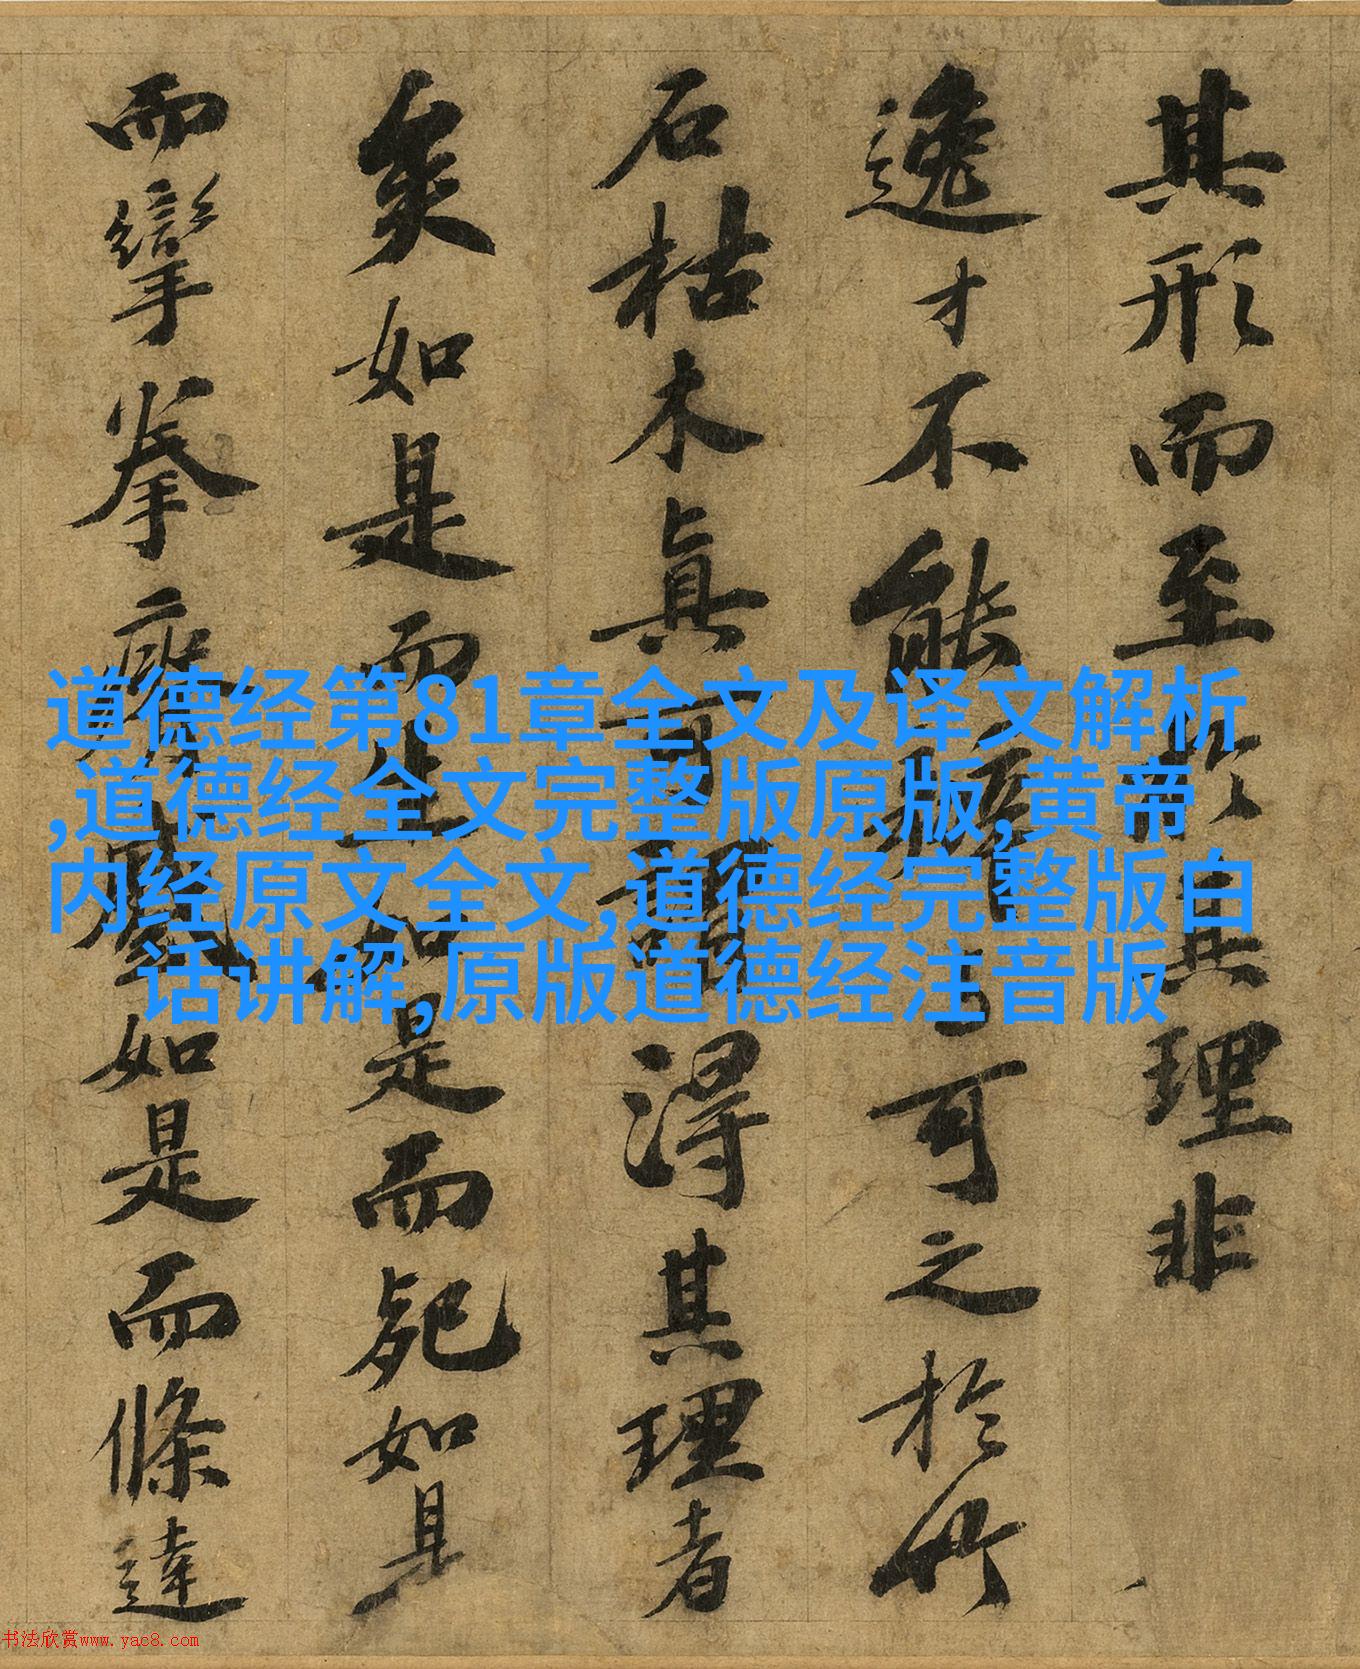 其形而至於其理非
逸才不能辨可之於竹
石枯木真可謂得其理者
矣如是而生如是而死如是
而攣拳瘠蹙如是而條達
道德经第81章全文及译文解析
,道德经全文完整版原版,黄帝
内经原文全文,道德经完整版白
话讲解,原版道德经注音版
书法欣赏www.yac8.com